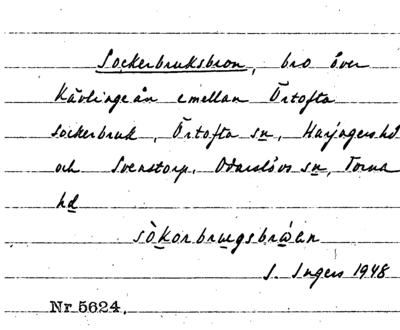 Sockerbruksbron, bro över
Kävlingeån emellan Örtofta
sockerbruk, Örtofta sn, Harjagers hd
och Svenstorp, Odarslövs sn, Torna
hd
I. Ingers 1948
Nr 5624.